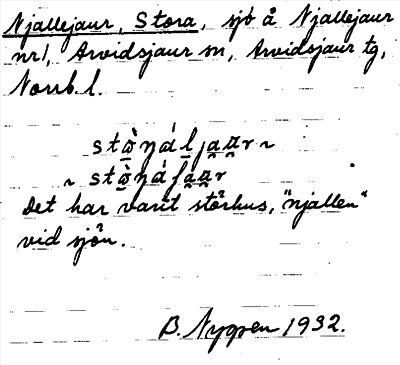 Njallejaur, Stora, sjö å Njallejaur
nr 1, Arvidsjaur sn, Arvidsjaur tg,
Norrb. l.
Det har varit störhus, "njallen"
vid sjön.
B. Nygren 1932.